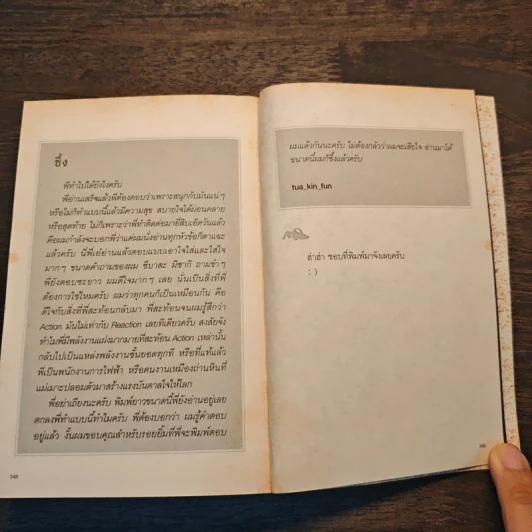 ซึ้ง
พี่ทำไปได้ยังไงครับ
พี่อ่านเสร็จแล้วพี่ต้องตอบว่าเพราะสนุกกับมันแน่ๆ
หรือไม่ก็ทำแบบนี้แล้วมีความสุข สบายใจได้ผ่อนคลาย
หรือสุดท้าย ไม่ก็เพราะว่าพี่ทำติดต่อมายี่สิบเอ็ดวันแล้ว
คือผมกำลังจะบอกพี่ว่าแค่ผมนั่งอ่านทุกหัวข้อก็ตาแฉะ
แล้วครับ นี่พี่เอ๋อ่านแล้วตอบแบบเอาใจใส่และใส่ใจ
มากๆ ขนาดคำถามของผม ชีบาละ มิซากิ ถามขำๆ
พี่ยังตอบซะยาว ผมดีใจมากๆ เลย นั่นเป็นสิ่งที่พี่
ต้องการใช่ไหมครับ ผมว่าทุกคนก็เป็นเหมือนกัน คือ
ดีใจกับสิ่งที่พี่สะท้อนกลับมา พี่สะท้อนจนผมรู้สึกว่า
Action มันไม่เท่ากับ Reaction เลยทีเดียวครับ สงสัยจัง
ทำไมพี่มีพลังงานแฝงมากมายที่สะท้อน Action เหล่านั้น
กลับไปเป็นแหล่งพลังงานชั้นยอดทุกที หรือที่แท้แล้ว
พี่เป็นพนักงานการไฟฟ้า หรือคนงานเหมืองถ่านหินที่
แม่เมาะปลอมตัวมาสร้างแรงบันดาลใจให้โลก
พี่อย่าเถียงนะครับ พิมพ์ยาวขนาดนี้พี่ยังอ่านอยู่เลย
ตกลงพี่ทำแบบนี้ทำไมครับ พี่ต้องบอกว่า ผมรู้คำตอบ
อยู่แล้ว งั้นผมขอบคุณสำหรับรอยยิ้มที่พี่จะพิมพ์ตอบ
348
ผมแล้วกันนะครับ ไม่ต้องกลัวว่าผมจะเสียใจ อ่านมาได้
ขนาดนี้ผมก็ซึ้งแล้วครับ
tua_kin_fun
ฮ่าฮ่า ชอบที่พิมพ์มาจังเลยครับ
: )